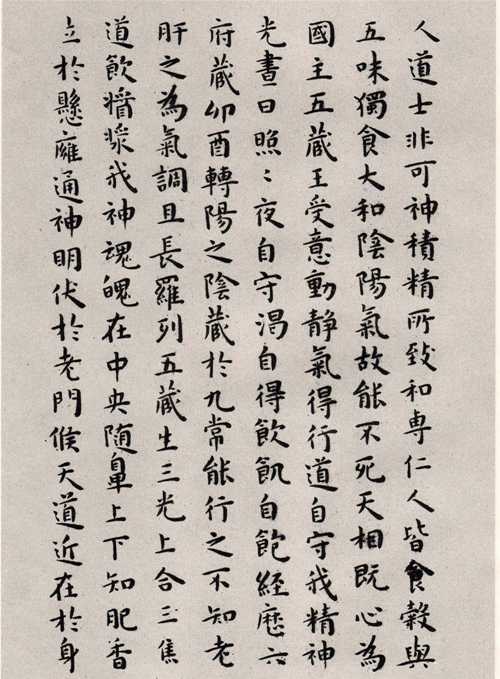 人道士非可神積精所致和専仁人皆食穀與
五味獨食大和陰陽氣故能不死天相既心為
國主五蔵王受意動静氣得行道自守我精神
光晝日照〻夜自守渇自得飲飢自飽經歷六
府蔵卯酉轉陽之陰蔵於九常能行之不知老
肝之為氣調且長羅列五蔵生三光上合三焦
道飲醬漿我神魂魄在中央随鼻上下知肥香
立於懸廱通神明伏於老門候天道近在於身